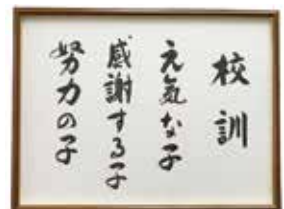 校訓
元気な子
感謝する子
努力の子